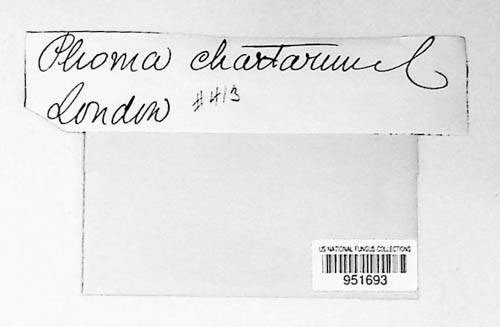 Phoma chartarum C
London #413
US NATIONAL FUNGUS COLLECTIONS
951693